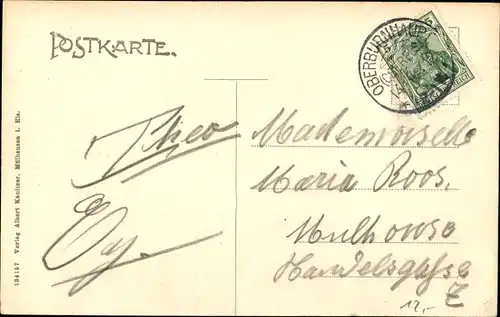 POSTKARTE.
OBERBURNHAUPT
Theo
Mademoiselle
Maria Roos.
Mulhouse
Handelsgasse
12,-
134157 Verlag Albert Kanitzer, Mülhausen i. Els.